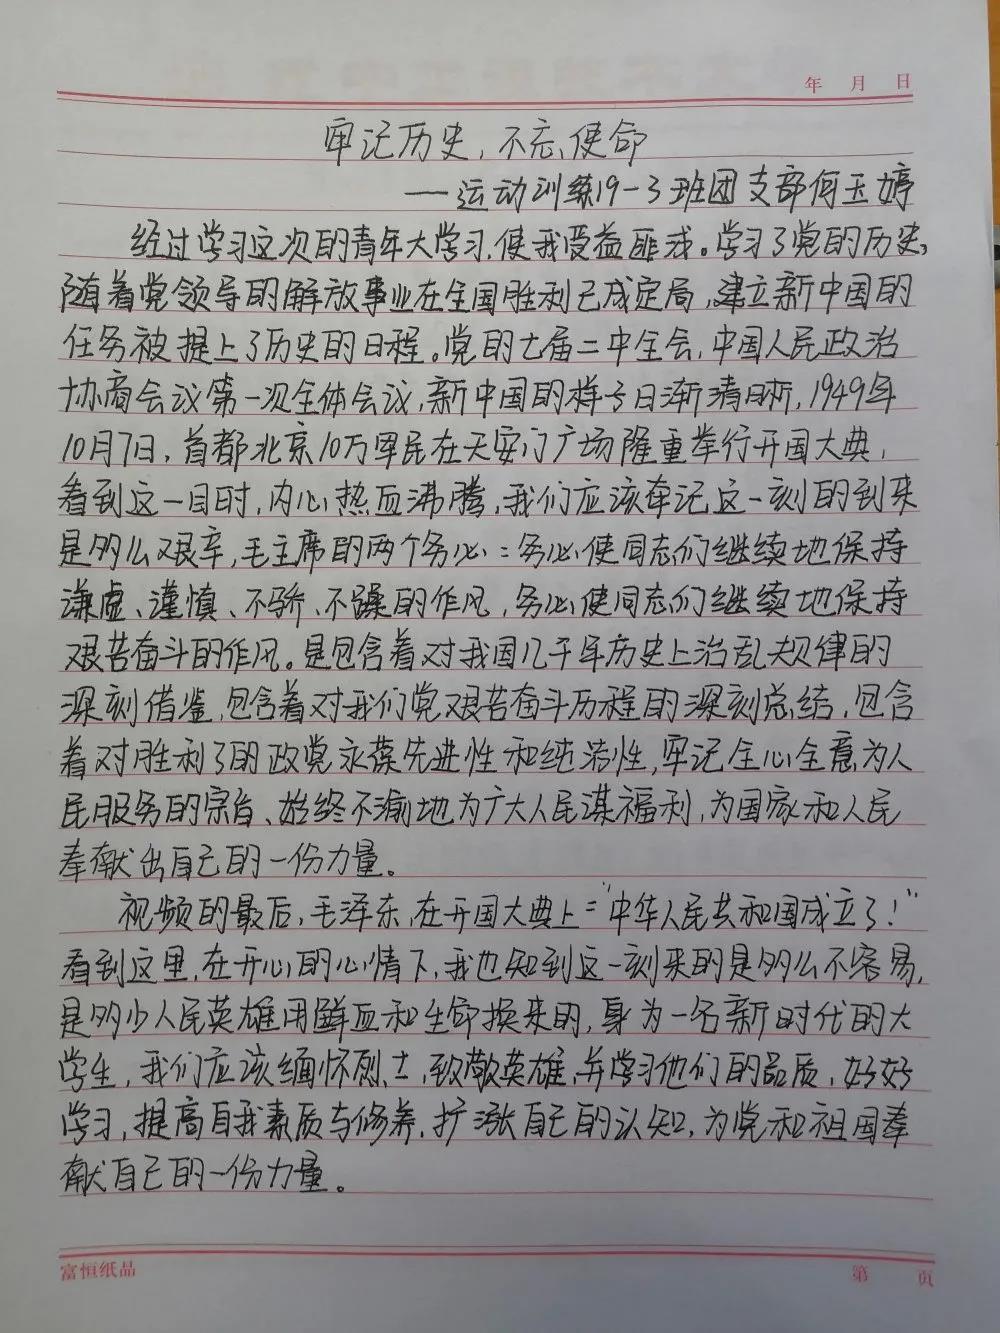 年 月 日
牢记历史，不忘使命
——运动训练19-3班团支部何玉婷
经过学习这次的青年大学习，使我受益匪浅。学习了党的历史，
随着党领导的解放事业在全国胜利已成定局，建立新中国的
任务被提上了历史的日程。党的七届二中全会，中国人民政治
协商会议第一次全体会议，新中国的样子日渐清晰，1949年
10月7日，首都北京10万军民在天安门广场隆重举行开国大典，
看到这一目时，内心热血沸腾，我们应该牢记这一刻的到来
是多么艰辛，毛主席的两个务必：务必使同志们继续地保持
谦虚、谨慎、不骄、不躁的作风，务必使同志们继续地保持
艰苦奋斗的作风。是包含着对我国几千年历史上治乱规律的
深刻借鉴，包含着对我们党艰苦奋斗历程的深刻总结，包含
着对胜利了的政党永葆先进性和纯洁性，牢记全心全意为人
民服务的宗旨、始终不渝地为广大人民谋福利，为国家和人民
奉献出自己的一份力量。
视频的最后，毛泽东，在开国大典上：“中华人民共和国成立了！”
看到这里，在开心的心情下，我也知到这一刻来的是多么不容易，
是多少人民英雄用鲜血和生命换来的，身为一名新时代的大
学生，我们应该缅怀烈士，致敬英雄，并学习他们的品质，好好
学习，提高自我素质与修养，扩涨自己的认知，为党和祖国奉
献自己的一份力量。
富恒纸品
第 页